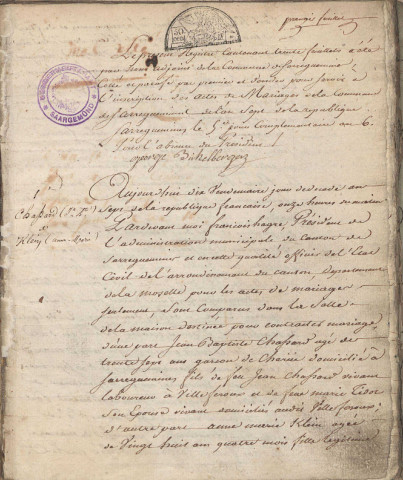 premier feuillet
Le présent Registre contenant trente feuillets a été
par nous adjoint de la Commune de Sarreguemine
Cotté et paraphé par premier et dernier pour servir à
l'inscription des actes de Mariages de la Commune
de Sarreguemine de l'an Sept de la république
Sarreguemines le 5e jour Complementaire an 6.
Pour l'absence du Président
george Bickelberger
SAARGEMÜND
1er
Chassard (Jn Bte)
et
Klein (anne marie)
Aujourd'hui dix Vendemiaire jour de decade an
Sept de la republique francaise, onze heures du matin
Pardevant moi francois hagre, President de
l'administration municipale du canton de
Sarreguemine et en cette qualité officier de l'Etat
Civil de l'arrondissement du canton, departement
de la moselle pour les actes de mariage
seulement, Sont Comparus dans la Salle
de la maison destinée pour contracter mariage
d'une part Jean Baptiste Chassard agé de
trente Sept ans garcon de Charue domicilié à
Sarreguemines fils de feu Jean Chassard vivant
laboureur à Ville et de feue marie
Son Epouse vivant domiciliés audit Ville
d'autre part anne marie Klein agée
de Vingt huit ans quatre mois fille legitime